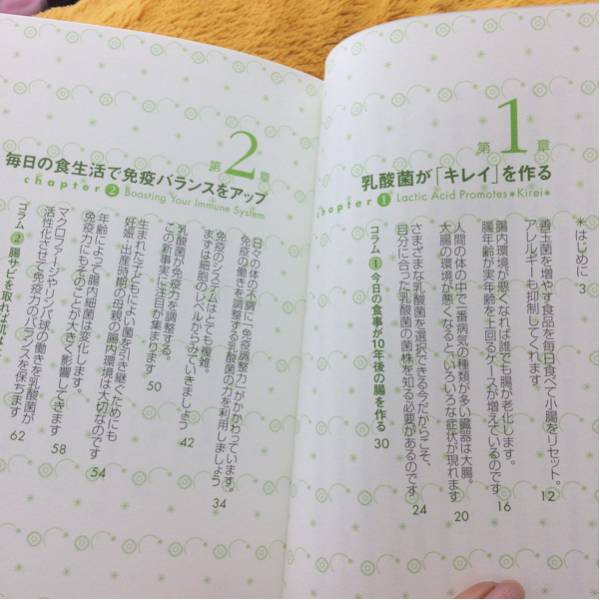 *はじめに 3
第1章
乳酸菌が「キレイ」を作る
chapter 1 Lactic Acid Promotes *Kirei*
善玉菌を増やす食品を毎日食べて小腸をリセット。
アレルギーも抑制してくれます 12
腸内環境が悪くなれば誰でも腸が老化します。
腸年齢が実年齢を上回るケースが増えているのです 16
人間の体の中で一番病気の種類が多い臓器は大腸。
大腸の環境が悪くなるといろいろな症状が現れます 20
さまざまな乳酸菌を選択できる今だからこそ、
自分に合った乳酸菌の菌株を知る必要があるのです 24
コラム 1 今日の食事が10年後の腸を作る 30
第2章
毎日の食生活で免疫バランスをアップ
chapter 2 Boosting Your Immune System
日々の体の不調に「免疫調整力」がかかわっています。
免疫の働きを調整する乳酸菌の力を利用しましょう 34
免疫のシステムはとても複雑。
まずは細胞のレベルからみていきましょう 42
乳酸菌が免疫力を調整する。
この新事実に注目が集まります 50
生まれた子どもによい菌を引き継ぐためにも
妊娠・出産時期の母親の腸内環境は大切なのです 54
年齢によって腸内細菌は変化します。
免疫力にもそのことが大きく影響してきます 58
マクロファージやリンパ球の働きを乳酸菌が
活性化させて免疫力のバランスを保ちます 62
コラム 2 腸サビを取れば肌は